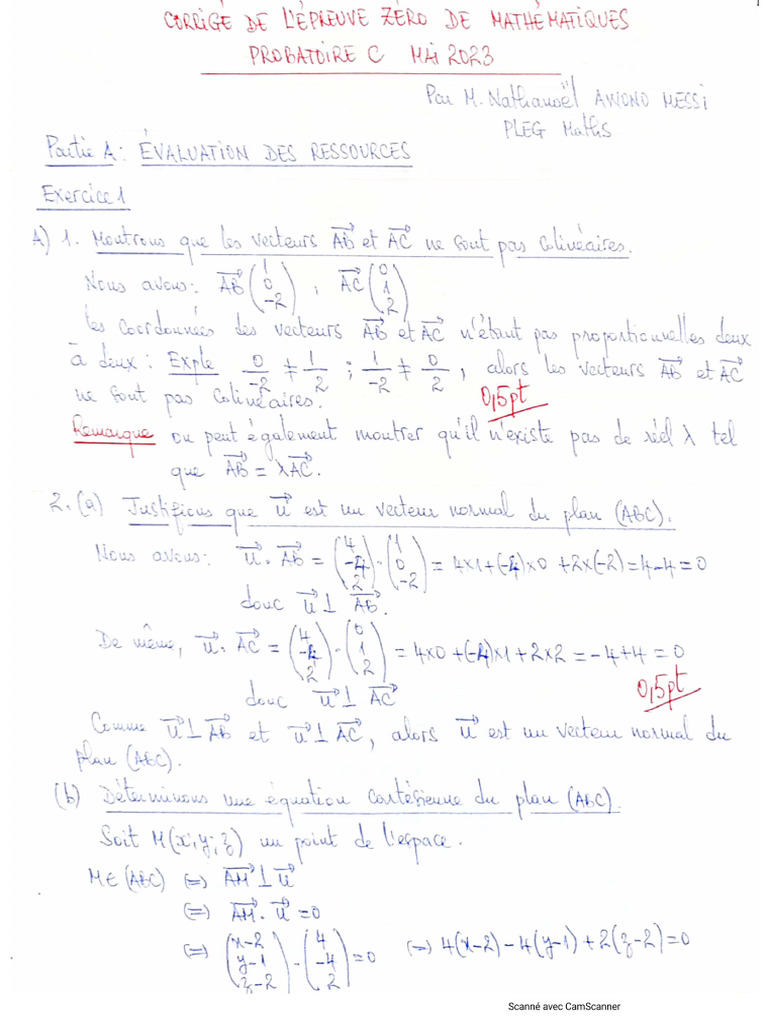 1
CORRIGÉ DE L'ÉPREUVE ZÉRO DE MATHÉMATIQUES
PROBATOIRE C MAI 2023
Par M. Nathanaël AWONO MESSI
PLEG Maths
Partie A : ÉVALUATION DES RESSOURCES
Exercice 1
A) 1. Montrons que les vecteurs AB→ et AC→ ne sont pas colinéaires.
Nous avons: AB→ (1 0 -2) , AC→ (0 1 2)
les coordonnées des vecteurs AB→ et AC→ n'étant pas proportionnelles deux
à deux : Exple 0/-2 ≠ 1/2 ; 1/-2 ≠ 0/2 , alors les vecteurs AB→ et AC→
ne sont pas colinéaires. 0,5pt
Remarque on peut également montrer qu'il n'existe pas de réel λ tel
que AB→ = λAC→.
2. (a) Justifions que u→ est un vecteur normal du plan (ABC).
Nous avons: u→ . AB→ = (4 -4 2) . (1 0 -2) = 4x1+(-4)x0 +2x(-2)=4-4=0
donc u→ ⊥ AB→.
De même, u→. AC→ = (4 -4 2) . (0 1 2) = 4x0 +(-4)x1+2x2 = -4+4=0
donc u→ ⊥ AC→ 0,5pt
Comme u→⊥AB→ et u→⊥AC→, alors u→ est un vecteur normal du
plan (ABC).
(b) Déterminons une équation cartésienne du plan (ABC).
Soit M(x;y;z) un point de l'espace.
M∈(ABC) ⇔ AM→⊥u→
⇔ AM→. u→=0
⇔ (x-2 y-1 z-2) . (4 -4 2) =0 ⇔ 4(x-2)-4(y-1)+2(z-2)=0
Scanné avec CamScanner